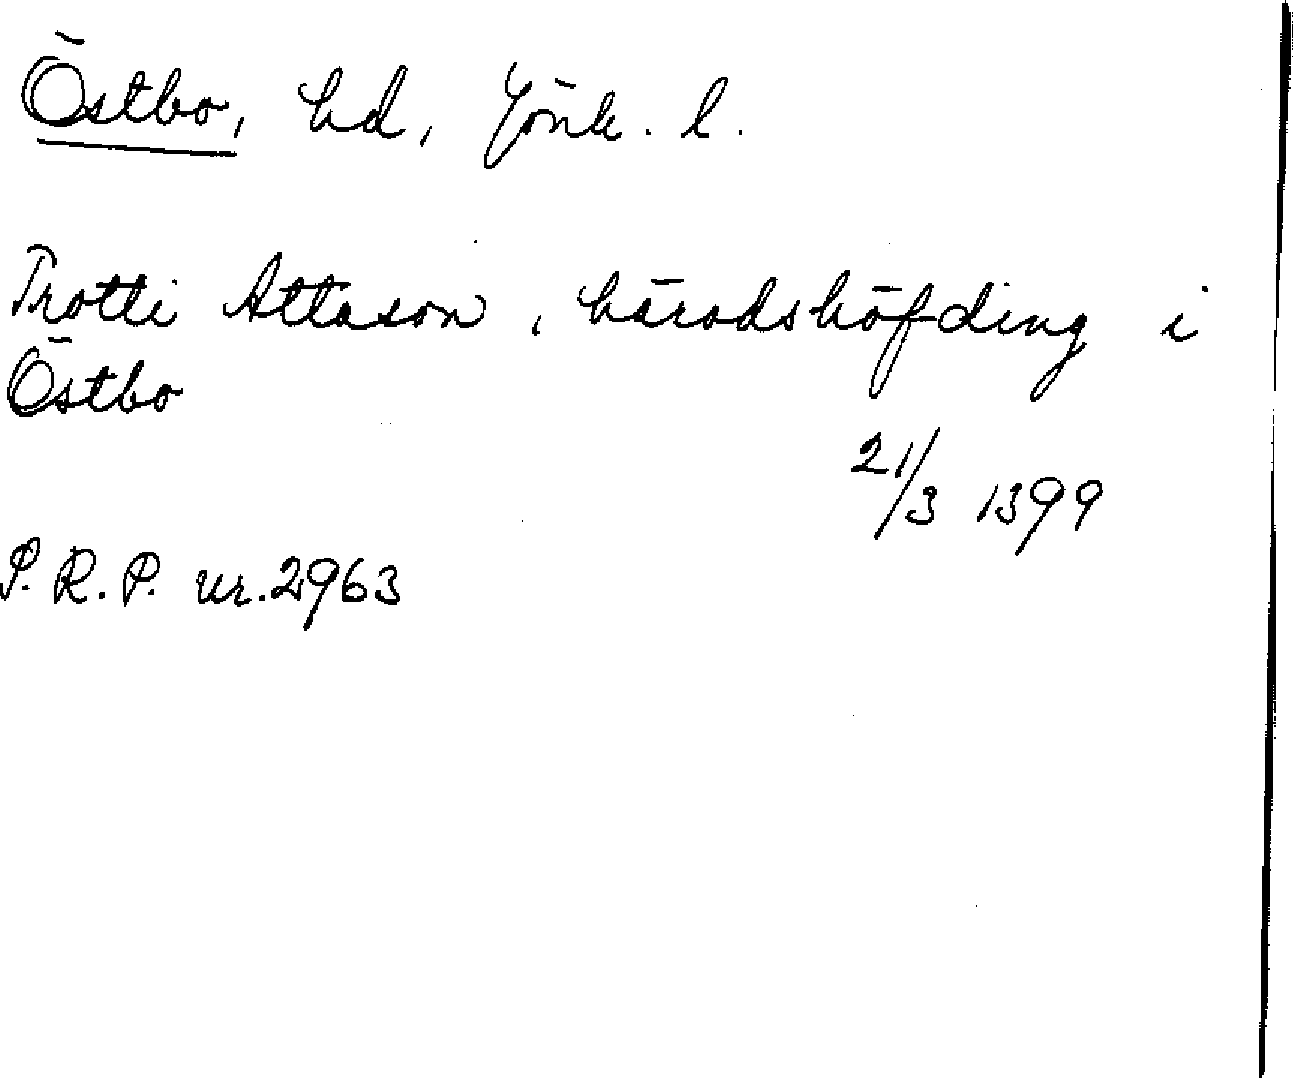 Östbo, hd, Jönk. l.
Trotti Attason, häradshöfding i
Östbo
21/3 1399
P. R. P. nr. 2963